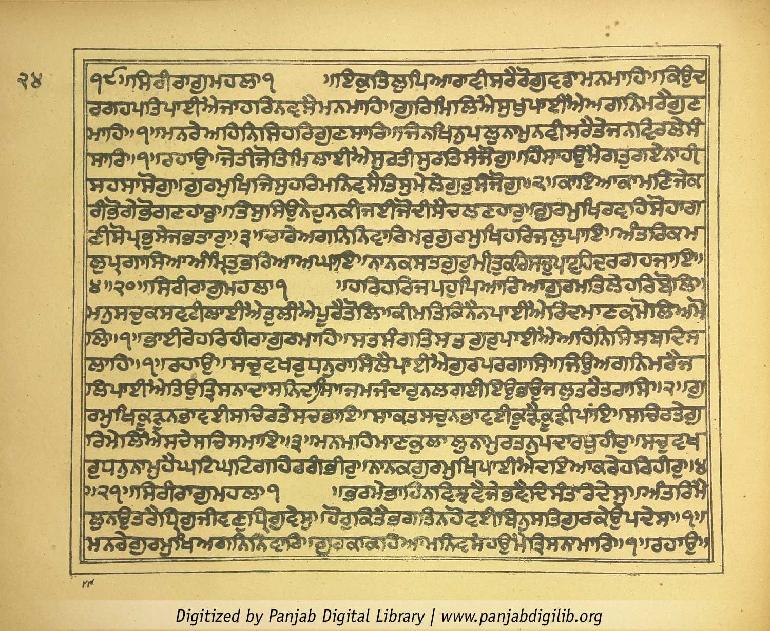 ੨੪
੧੯॥ਸਿਰੀਰਾਗੁਮਹਲਾ੧ ॥ਇਕੁਤਿਲੁਪਿਆਰਾਵੀਸਰੈਰੋਗੁਵਡਾਮਨਮਾਹਿ॥ਕਿਉਦ
ਰਗਹਪਤਿਪਾਈਐਜਾਹਰਿਨਵਸੈਮਨਮਾਹਿ॥ਗੁਰਿਮਿਲਿਐਸੁਖੁਪਾਈਐਅਗਨਿਮਰੈਗੁਣ
ਮਾਹਿ॥੧॥ਮਨਰੇਅਹਿਨਿਸਿਹਰਿਗੁਣਸਾਰਿ॥ਜਿਨਖਿਨੁਪਲੁਨਾਮੁਨਵੀਸਰੈਤੇਜਨਵਿਰਲੇਸੰ
ਸਾਰਿ॥੧॥ਰਹਾਉ॥ਜੋਤੀਜੋਤਿਮਿਲਾਈਐਸੁਰਤੀਸੁਰਤਿਸੰਜੋਗੁ॥ਹਿੰਸਾਹਉਮੈਗਤੁਗਏਨਾਹੀ
ਸਹਸਾਸੋਗੁ॥ਗੁਰਮੁਖਿਜਿਸੁਹਰਿਮਨਿਵਸੈਤਿਸੁਮੇਲੇਗੁਰੁਸੰਜੋਗੁ॥੨॥ਕਾਇਆਕਾਮਣਿਜੇਕ
ਰੀਭੋਗੇਭੋਗਣਹਾਰੁ॥ਤਿਸੁਸਿਉਨੇਹੁਨਕੀਜਈਜੋਦੀਸੈਚਲਣਹਾਰੁ॥ਗੁਰਮੁਖਿਰਵਹਿਸੋਹਾਗ
ਣੀਸੋਪ੍ਰਭੁਸੇਜਭਤਾਰੁ॥੩॥ਚਾਰੇਅਗਨਿਨਿਵਾਰਿਮਰੁਗੁਰਮੁਖਿਹਰਿਜਲੁਪਾਇ॥ਅੰਤਰਿਕਮ
ਲੁਪ੍ਰਗਾਸਿਆਅੰਮ੍ਰਿਤੁਭਰਿਆਅਘਾਇ॥ਨਾਨਕਸਤਗੁਰੁਮੀਤੁਕਰਿਸਚੁਪਾਵਹਿਦਰਗਹਜਾਇ॥
੪॥੨੦॥ਸਿਰੀਰਾਗੁਮਹਲਾ੧ ॥ਹਰਿਹਰਿਜਪਹੁਪਿਆਰਿਆਗੁਰਮਤਿਲੇਹਰਿਬੋਲਿ॥
ਮਨੁਸਚਕਸਵਟੀਲਾਈਐਤੁਲੀਐਪੂਰੈਤੋਲਿ॥ਕੀਮਤਿਕਿਨੈਨਪਾਈਐਰਿਦਮਾਣਕਮੋਲਿਅਮੋ
ਲਿ॥੧॥ਭਾਈਰੇਹਰਿਹੀਰਾਗੁਰਮਾਹਿ॥ਸਤਸੰਗਤਿਸਤਗੁਰੁਪਾਈਐਅਹਿਨਿਸਿਸਬਦਿਸ
ਲਾਹਿ॥੧॥ਰਹਾਉ॥ਸਚੁਵਖਰੁਧਨੁਰਾਸਿਲੈਪਾਈਐਗੁਰਪਰਗਾਸਿ॥ਜਿਉਅਗਨਿਮਰੈਜ
ਲਿਪਾਇਐਤਿਉਤ੍ਰਿਸਨਾਦਾਸਨਿਦਾਸਿ॥ਜਮਜੰਦਾਰੁਨਲਗਈਇਉਭਉਜਲੁਤਰੈਤਰਾਸਿ॥੨॥ਗੁ
ਰਮੁਖਿਕੂੜੁਨਭਾਵਈਸਾਚਿਰਤੇਸਚਭਾਇ॥ਸਾਕਤਸਚੁਨਭਾਵਈਕੂੜੈਕੂੜੀਪਾਂਇ॥ਸਾਚਿਰਤੇਗੁ
ਰਿਮੇਲਿਐਸਚੇਸਾਚਿਸਮਾਇ॥੩॥ਮਨਮਹਿਮਾਣਕੁਲਾਲੁਨਾਮੁਰਤਨੁਪਦਾਰਥੁਹੀਰੁ॥ਸਚੁਵਖ
ਰੁਧਨੁਨਾਮੁਹੈਘਟਿਘਟਿਗਹਿਰਗੰਭੀਰੁ॥ਨਾਨਕਗੁਰਮੁਖਿਪਾਈਐਦਇਆਕਰੇਹਰਿਹੀਰੁ॥੪
॥੨੧॥ਸਿਰੀਰਾਗੁਮਹਲਾ੧ ॥ਭਰਮੇਭਾਹਿਨਵਿਝਵੈਜੇਭਵੈਦਿਸੰਤਰਦੇਸੁ॥ਅੰਤਰਿਮੈ
ਲੁਨਉਤਰੈਧ੍ਰਿਗੁਜੀਵਣੁਧ੍ਰਿਗੁਵੇਸੁ॥ਹੋਰੁਕਿਤੈਭਗਤਿਨਹੋਵਈਬਿਨੁਸਤਿਗੁਰਕੇਉਪਦੇਸ॥੧॥
ਮਨਰੇਗੁਰਮੁਖਿਅਗਨਿਨਿਵਾਰਿ॥ਗੁਰਕਾਕਹਿਆਮਨਿਵਸੈਹਉਮੈਤ੍ਰਿਸਨਾਮਾਰਿ॥੧॥ਰਹਾਉ॥
Digitized by Panjab Digital Library | www.panjabdigilib.org